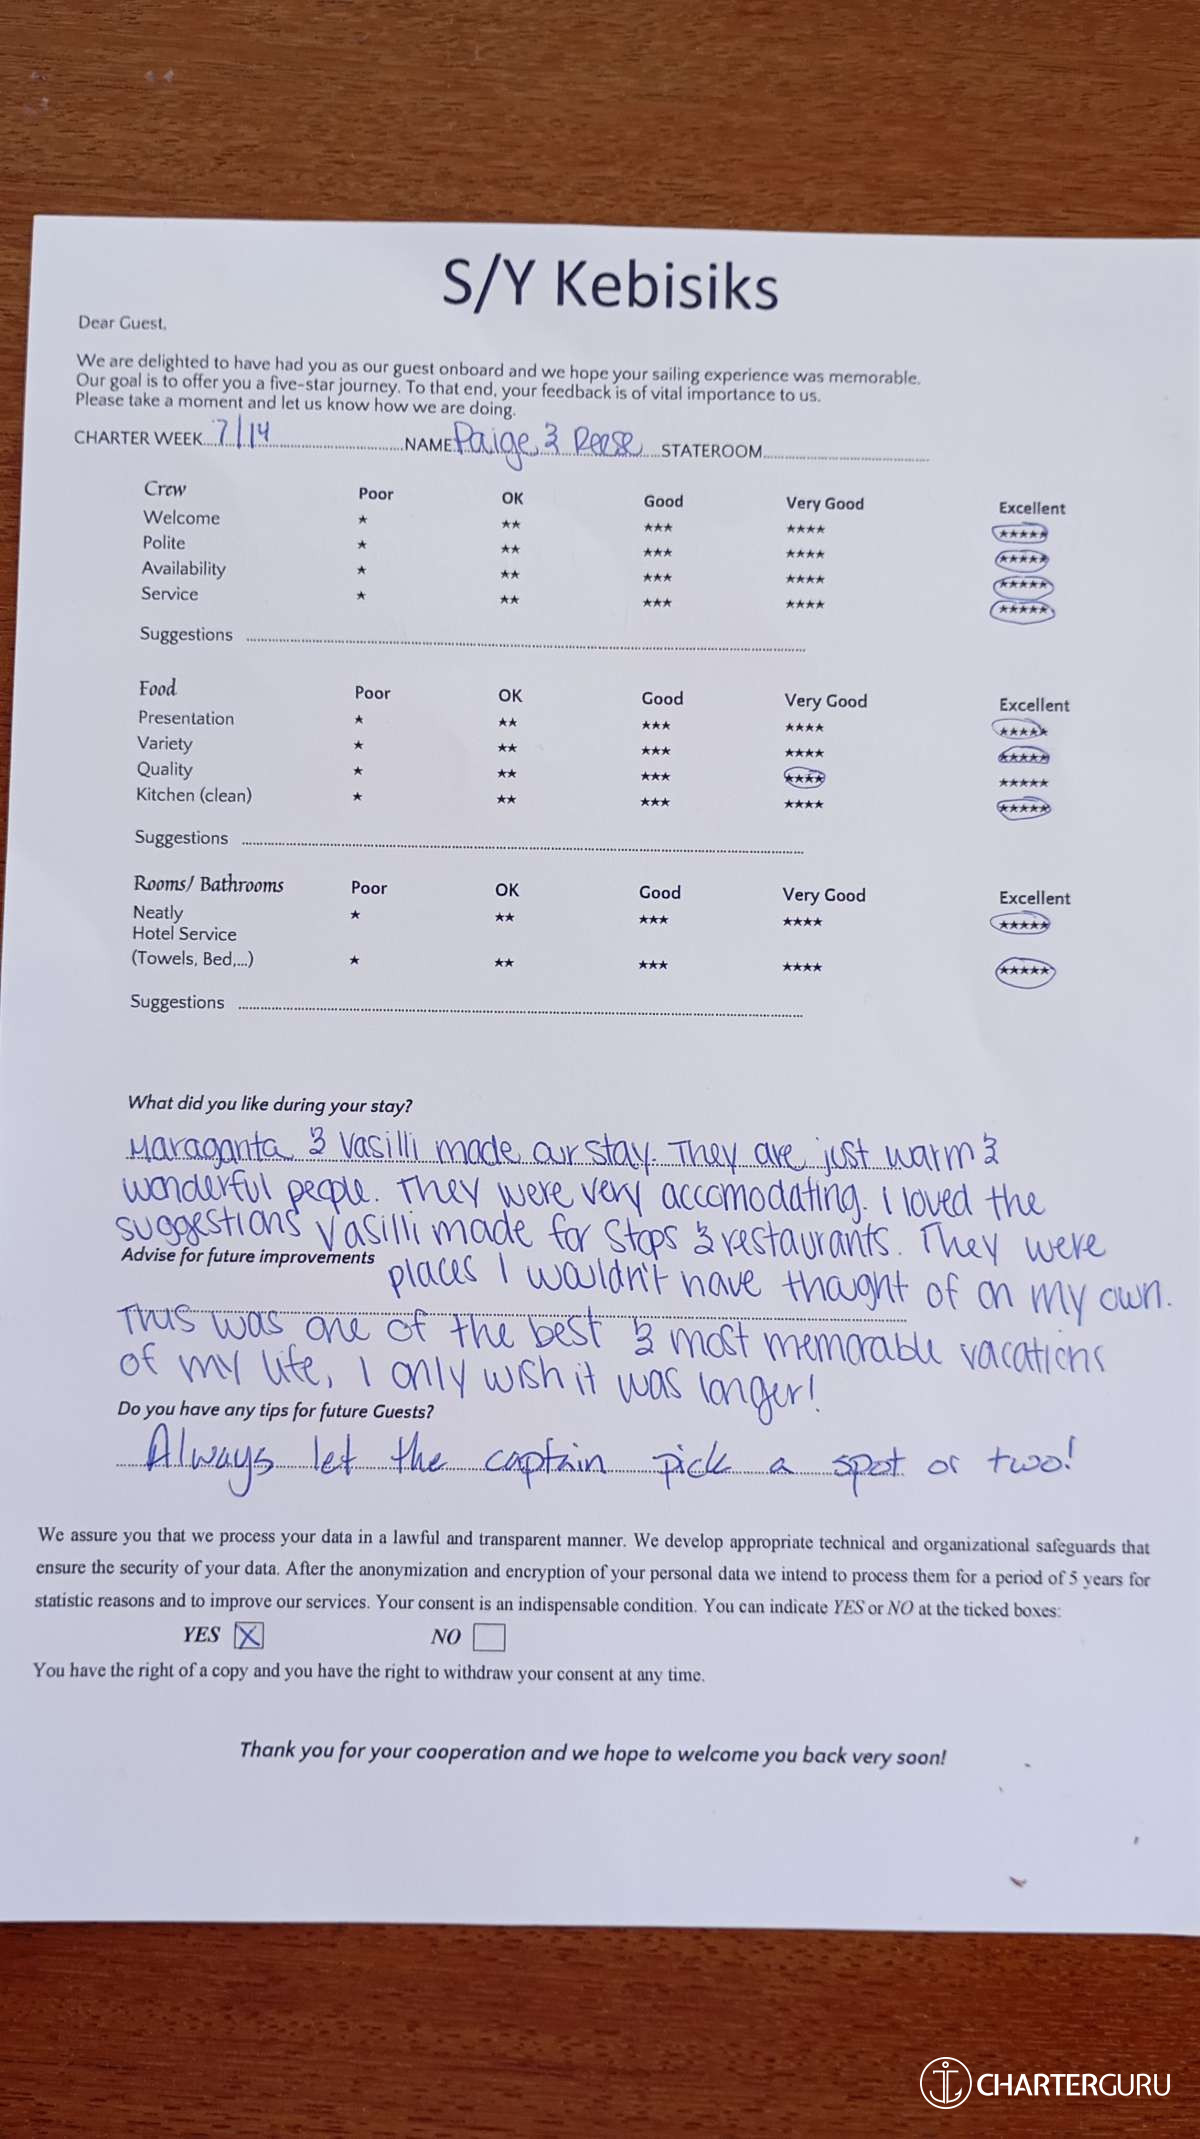 S/Y Kebisiks
Dear Guest,
We are delighted to have had you as our guest onboard and we hope your sailing experience was memorable.
Our goal is to offer you a five-star journey. To that end, your feedback is of vital importance to us.
Please take a moment and let us know how we are doing.
CHARTER WEEK 7/14 NAME Paige & Reese STATEROOM
Crew Poor OK Good Very Good Excellent
Welcome ★ ★★ ★★★ ★★★★ ★★★★★
Polite ★ ★★ ★★★ ★★★★ ★★★★★
Availability ★ ★★ ★★★ ★★★★ ★★★★★
Service ★ ★★ ★★★ ★★★★ ★★★★★
Suggestions
Food Poor OK Good Very Good Excellent
Presentation ★ ★★ ★★★ ★★★★ ★★★★★
Variety ★ ★★ ★★★ ★★★★ ★★★★★
Quality ★ ★★ ★★★ ★★★★ ★★★★★
Kitchen (clean) ★ ★★ ★★★ ★★★★ ★★★★★
Suggestions
Rooms/ Bathrooms Poor OK Good Very Good Excellent
Neatly ★ ★★ ★★★ ★★★★ ★★★★★
Hotel Service
(Towels, Bed,...) ★ ★★ ★★★ ★★★★ ★★★★★
Suggestions
What did you like during your stay?
Maraganta & Vasilli made our stay. They are just warm &
wonderful people. They were very accomodating. I loved the
suggestions Vasilli made for stops & restaurants. They were
Advise for future improvements
places I wouldn't have thought of on my own.
This was one of the best & most memorable vacations
of my life, I only wish it was longer!
Do you have any tips for future Guests?
Always let the captain pick a spot or two!
We assure you that we process your data in a lawful and transparent manner. We develop appropriate technical and organizational safeguards that
ensure the security of your data. After the anonymization and encryption of your personal data we intend to process them for a period of 5 years for
statistic reasons and to improve our services. Your consent is an indispensable condition. You can indicate YES or NO at the ticked boxes:
YES X NO
You have the right of a copy and you have the right to withdraw your consent at any time.
Thank you for your cooperation and we hope to welcome you back very soon!
CHARTERGURU